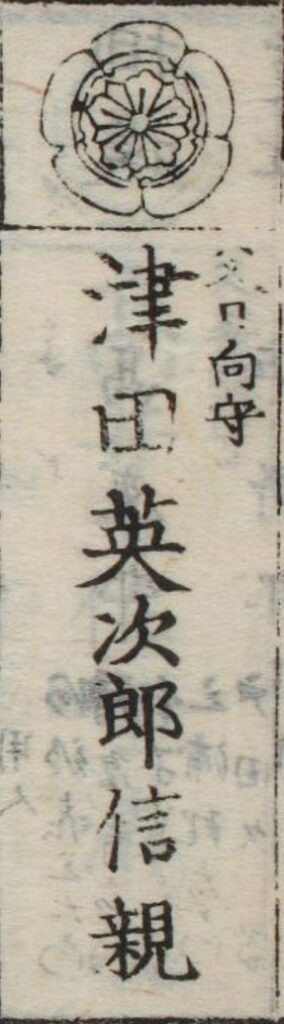 父日向守
津田英次郎信親